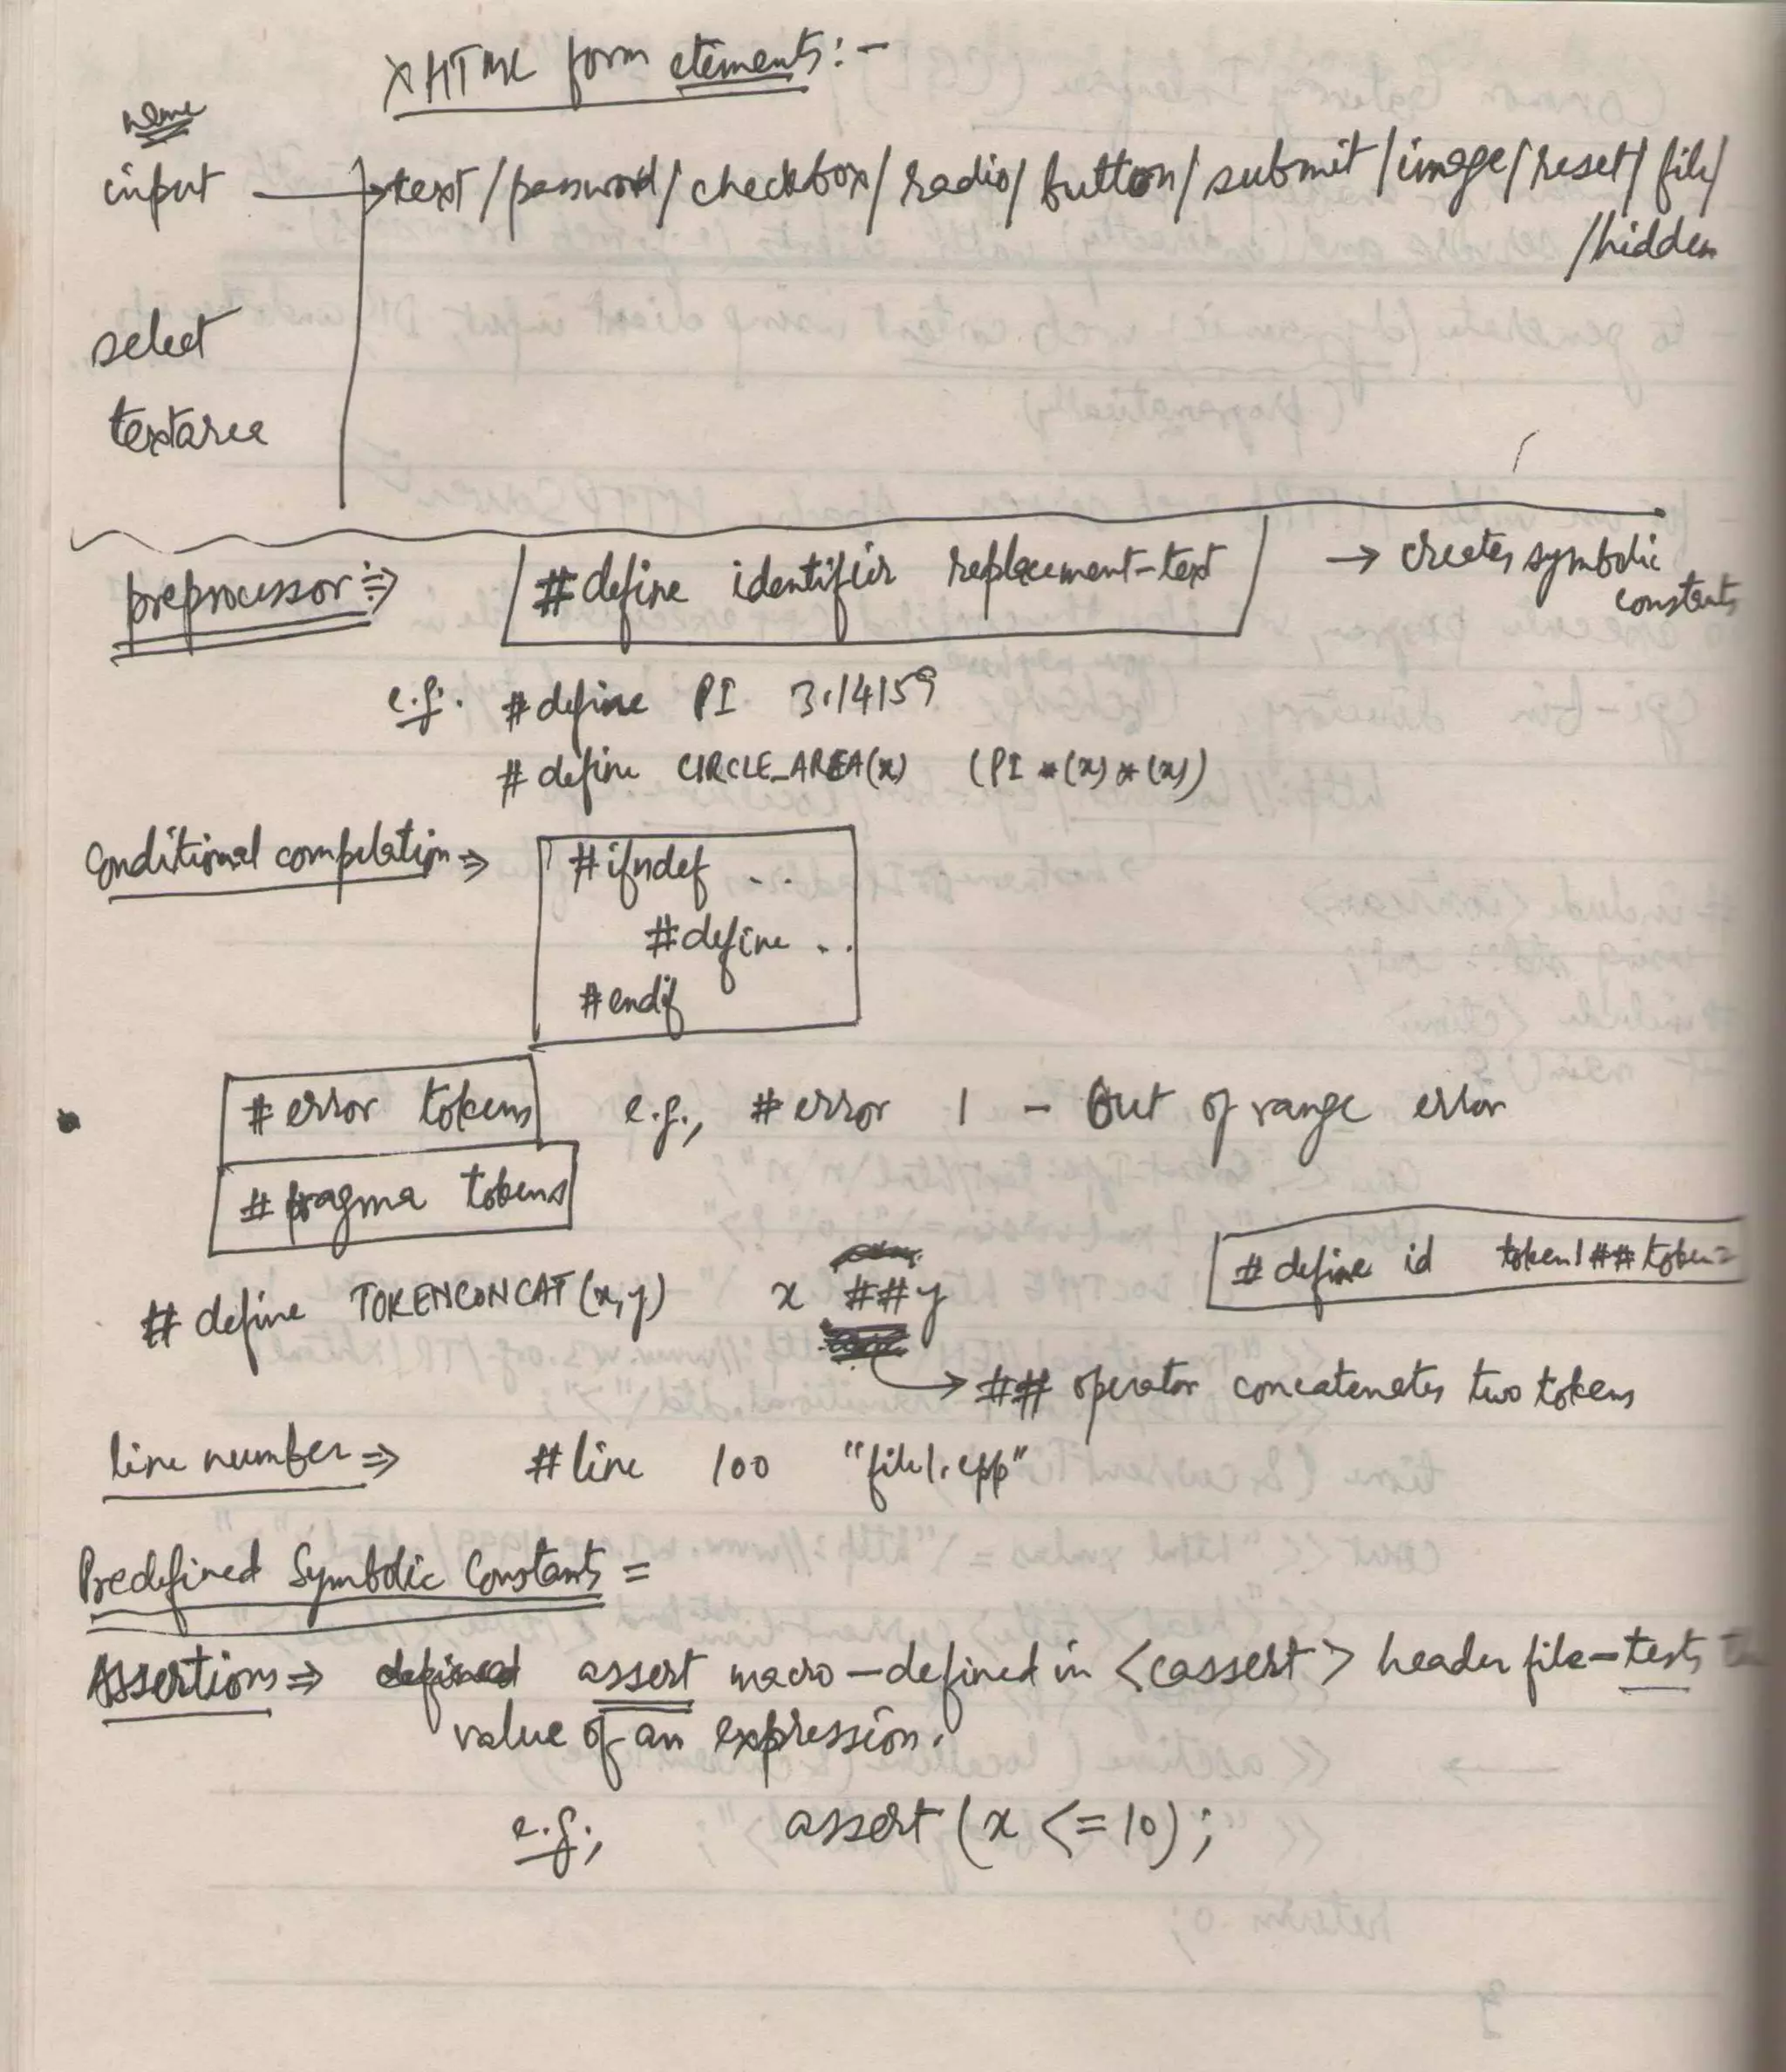 XHTML form elements:-
name
input → text/password/checkbox/radio/button/submit/image/reset/file/
/hidden
select
textarea
preprocessor :⇒ #define identifier replacement-text → creates symbolic
constants
e.g. #define PI 3.14159
#define CIRCLE_AREA(x) (PI *(x)*(x))
Conditional compilation ⇒ #ifndef ..
#define ..
#endif
#error tokens e.g., #error 1 - Out of range error
#pragma tokens
#define id token1##token2
#define TOKENCONCAT(x,y) x ##y
→ ## operator concatenates two tokens
line number ⇒ #line 100 "file1.cpp"
Predefined Symbolic Constants =
Assertions ⇒ defined assert macro - defined in <cassert> header file - tests
value of an expression.
e.g; assert(x <=10);